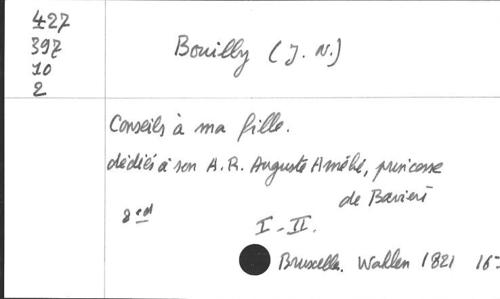 427
397
10
2
Bouilly (J. N.)
Conseils à ma fille.
dédiés à son A.R. Auguste Amélie, princesse
de Bavière
8 ed
I-II.
Bruxelles. Wahlen 1821 16: